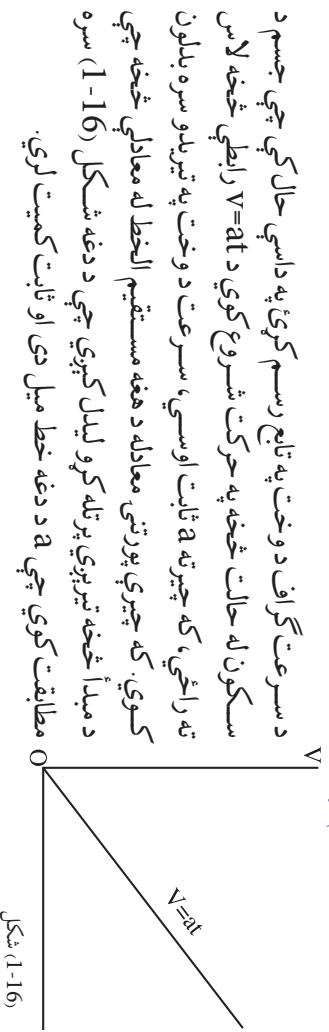 د سرعت گراف د وخت په تابع رسم کړئ په داسې حال کې چې جسم د
سکون له حالت څخه په حرکت شروع کوي د V=at رابطې څخه لاس
ته راځي، که چيرته a ثابت اوسي، سرعت د وخت په تيريدو سره بدلون
کوي. که چيرې پورتنۍ معادله د هغه مستقيم الخط له معادلې څخه چې
د مبدأ څخه تيريږي پرتله کړو ليدل کيږي چې د دغه شکل (1-16) سره
مطابقت کوي چې a د دغه خط ميل دی او ثابت کميت لري.
V
V=at
O
(1-16) شکل